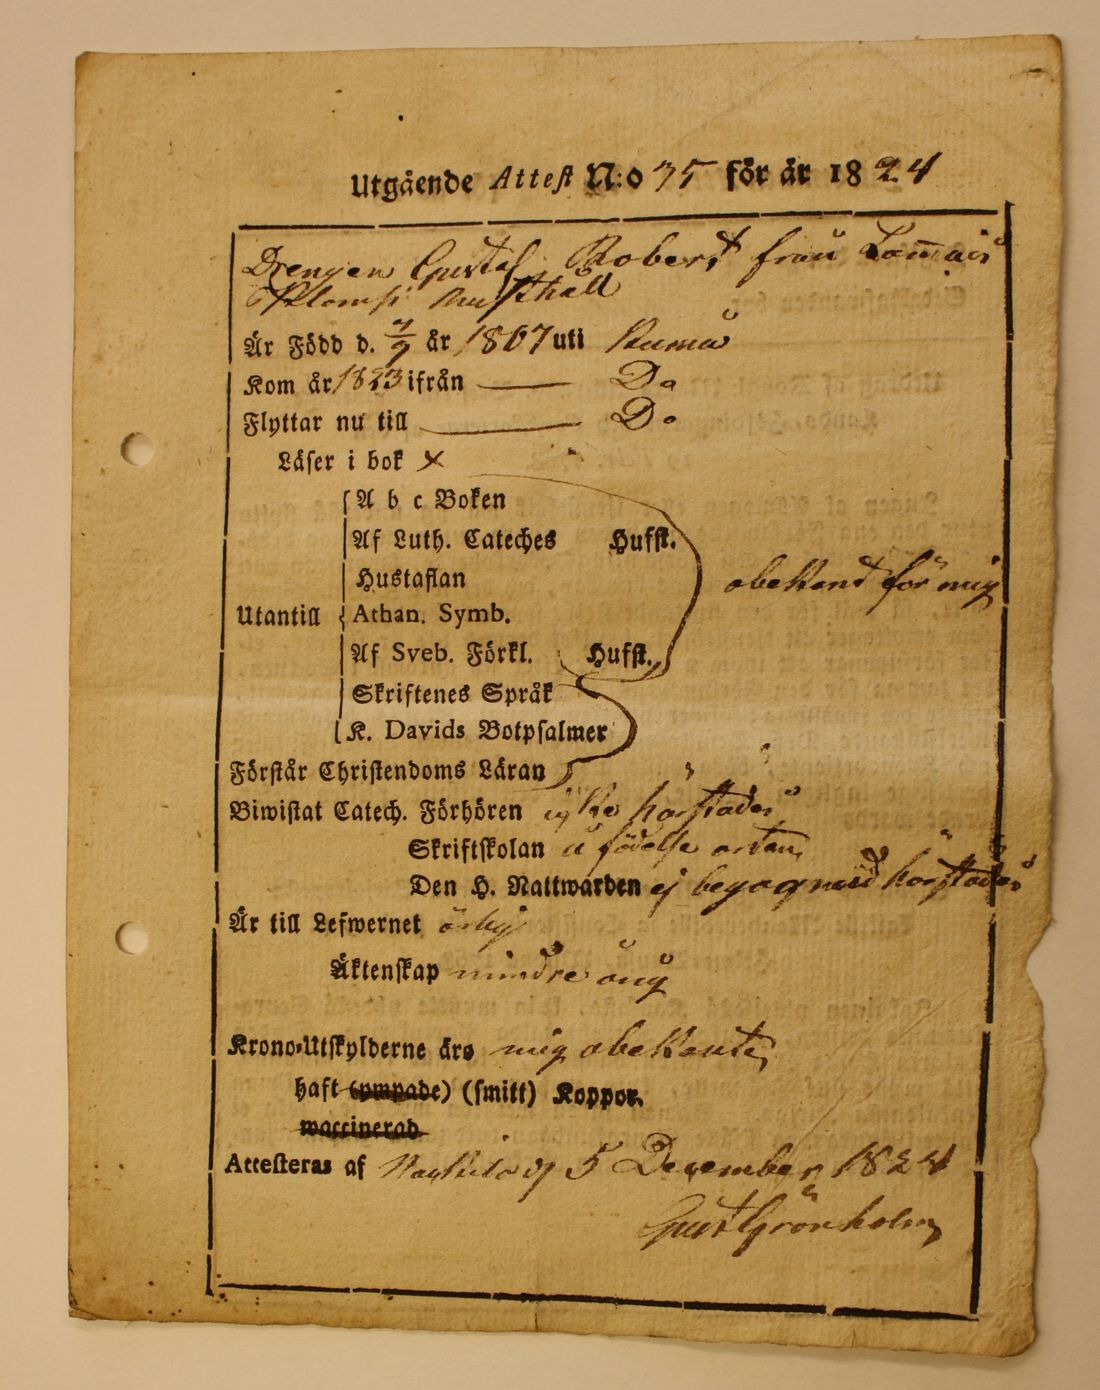 Utgående Attest N:o 35 för år 1824
Drengen Gustaf Robert från
Är Född d. 7/9 år 1807 uti Kumo
Kom år 1823 ifrån — Do
Flyttar nu till — Do
Läser i bok x
A b c Boken
Af Luth. Cateches Hufst.
Hustaflan obekant för mig
Utantill Athan. Symb.
Af Sveb. Förkl. Hufst.
Skriftenes Språk
K. Davids Botpsalmer
Förstår Christendoms Läran
Biwistat Catech. Förhören icke härstädes
Skriftskolan å födelse orten
Den H. Nattwarden ej begagnad härstädes
Är till Lefwernet ärlig
Äktenskap
Krono-Utskylderne äro mig obekante
haft (ympade) (smitt) Koppor.
waccinerad
Attesteras af 5 December 1824
Gust Grönholm